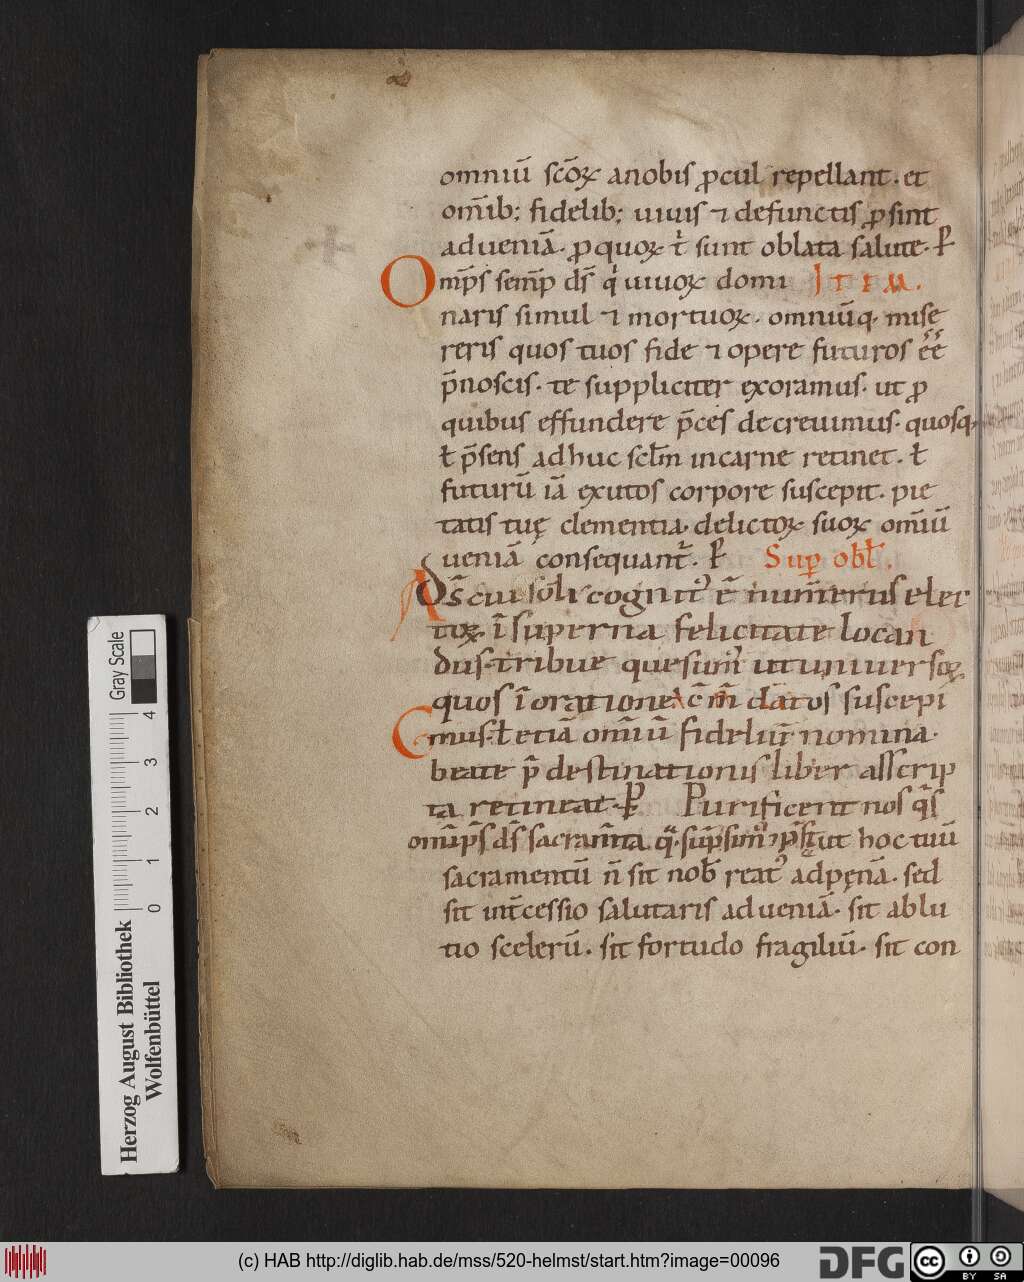 omniū scōꝝ anobis ꝓcul repellant. et
om̄ib; fidelib; uiuis ⁊ defunctis ꝓsint
adueniā. ꝓquoꝝ t̄ sunt oblata salute. P̄
Omp̄s semp̄ ds̄ qͥ uiuoꝝ domi ITEM.
naris simul ⁊ mortuoꝝ. omniūq. mise
reris quos tuos fide ⁊ opere futuros ēē
p̄noscis. te suppliciter exoramus. ut ꝓ
quibus effundere p̄ces decreuimus. quosq.
ł p̄sens adhuc sclm̄ incarne retinet. ł
futurū iā exutos corpore suscepit. pie
tatis tuę clementia. delictoꝝ suoꝝ om̄iū
ueniā consequant̄. P̄ Suꝑ obł.
Ds̄ cui soli cognit᷒ ē num̄erus elec
toꝝ. ī superna felicitate locan
dus. tribue quesum᷒ ut uniuersoꝝ
quos ī oratione cōm̄datos suscepi
mus. ł etiā om̄iū fideliū nomina.
beate p̄destinationis liber asscrip
ta retineat. P̄ Purificent nos q̄s
omp̄s ds̄ sacram̄ta q̄. sūpsim᷒ ut hoc tuū
sacramentū n̄ sit nob̄ reat᷒ adpęnā. sed
sit int̄cessio salutaris adueniā. sit ablu
tio scelerū. sit fortudo fragiliū. sit con
Gray Scale
4
3
2
1
0
Herzog August Bibliothek
Wolfenbüttel
(c) HAB http://diglib.hab.de/mss/520-helmst/start.htm?image=00096
DFG
cc
BY SA